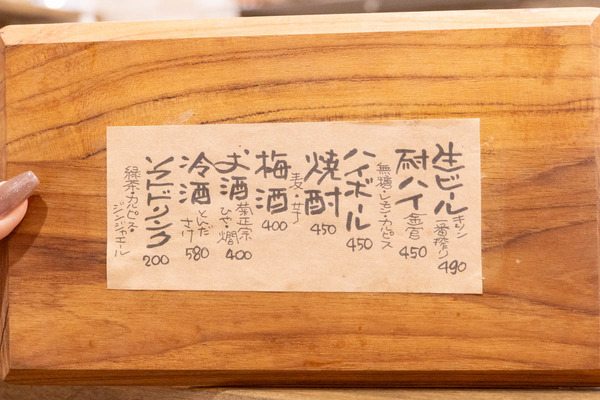 生ビール
キリン
一番搾り
490
酎ハイ
金宮
450
無糖・レモン・カルピス
ハイボール
450
焼酎
450
麦・芋
梅酒
400
お酒
菊正宗
ひや・燗
400
冷酒
とんだ
さけ
580
ソフトドリンク
200
緑茶・カルピス・
ジンジャエール